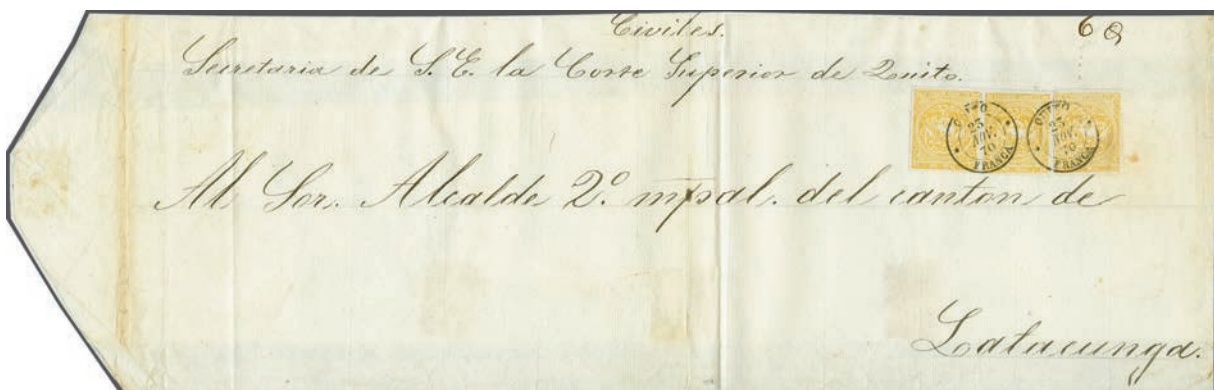 Civiles.
6
Secretaria de S. E. la Corte Superior de Quito.
QUITO
23
NOV.
70
FRANCA
QUITO
23
NOV.
70
FRANCA
Al Sor. Alcalde 2º. mpal. del canton de
Latacunga.